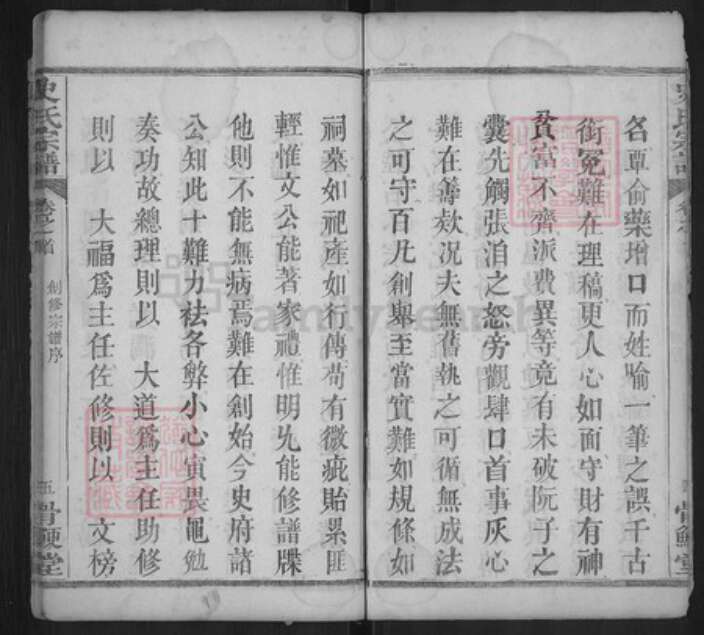 名覃俞藥增口而姓喻一筆之誤千古
銜冤難在理稿更人心如面守財有神
貧富不齊派費異等竟有未破阮子之
囊先觸張泊之怒旁觀肆口首事灰心
難在籌欵况夫無舊執之可循無成法
之可守百凡創舉至當實難如規條如
祠墓如祀產如行傳苟有微疵貽累匪
輕惟文公能著家禮惟明允能修譜牒
他則不能無病焉難在創始今史府諸
公知此十難力祛各弊小心寅畏黽勉
奏功故總理則以 大道爲主任助修
則以 大福爲主任佐修則以 文榜
史氏宗譜 卷之首 創修宗譜序 五 骨鯁堂